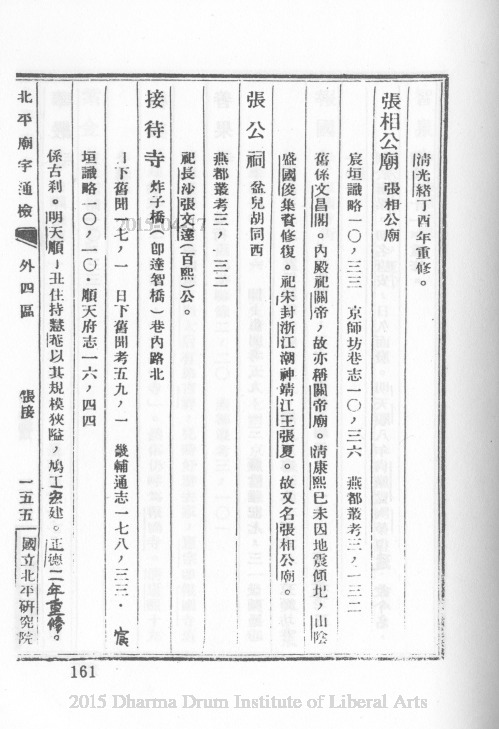 清光緒丁酉年重修。
張相公廟 張相公廟
宸垣識略一〇，三三 京師坊巷志一〇，三六 燕都叢考三，一三二
舊係文昌閣。內殿祀關帝，故亦稱關帝廟。清康熙己未因地震傾圮，山陰
盛國俊集資修復。祀宋封浙江潮神靖江王張夏。故又名張相公廟。
張公祠 盆兒胡同西
燕都叢考三，一三二
祀長沙張文達（百熙）公。
接待寺 炸子橋（卽達智橋）巷內路北
日下舊聞一七，一 日下舊聞考五九，一 畿輔通志一七八，三三．宸
垣識略一〇，一〇．順天府志一六，四四
係古刹。明天順丁丑住持慧菴以其規模狹隘，鳩工宏建。正德二年重修。
北平廟宇通檢 外四區 張接 一五五 國立北平研究院
161
2015 Dharma Drum Institute of Liberal Arts